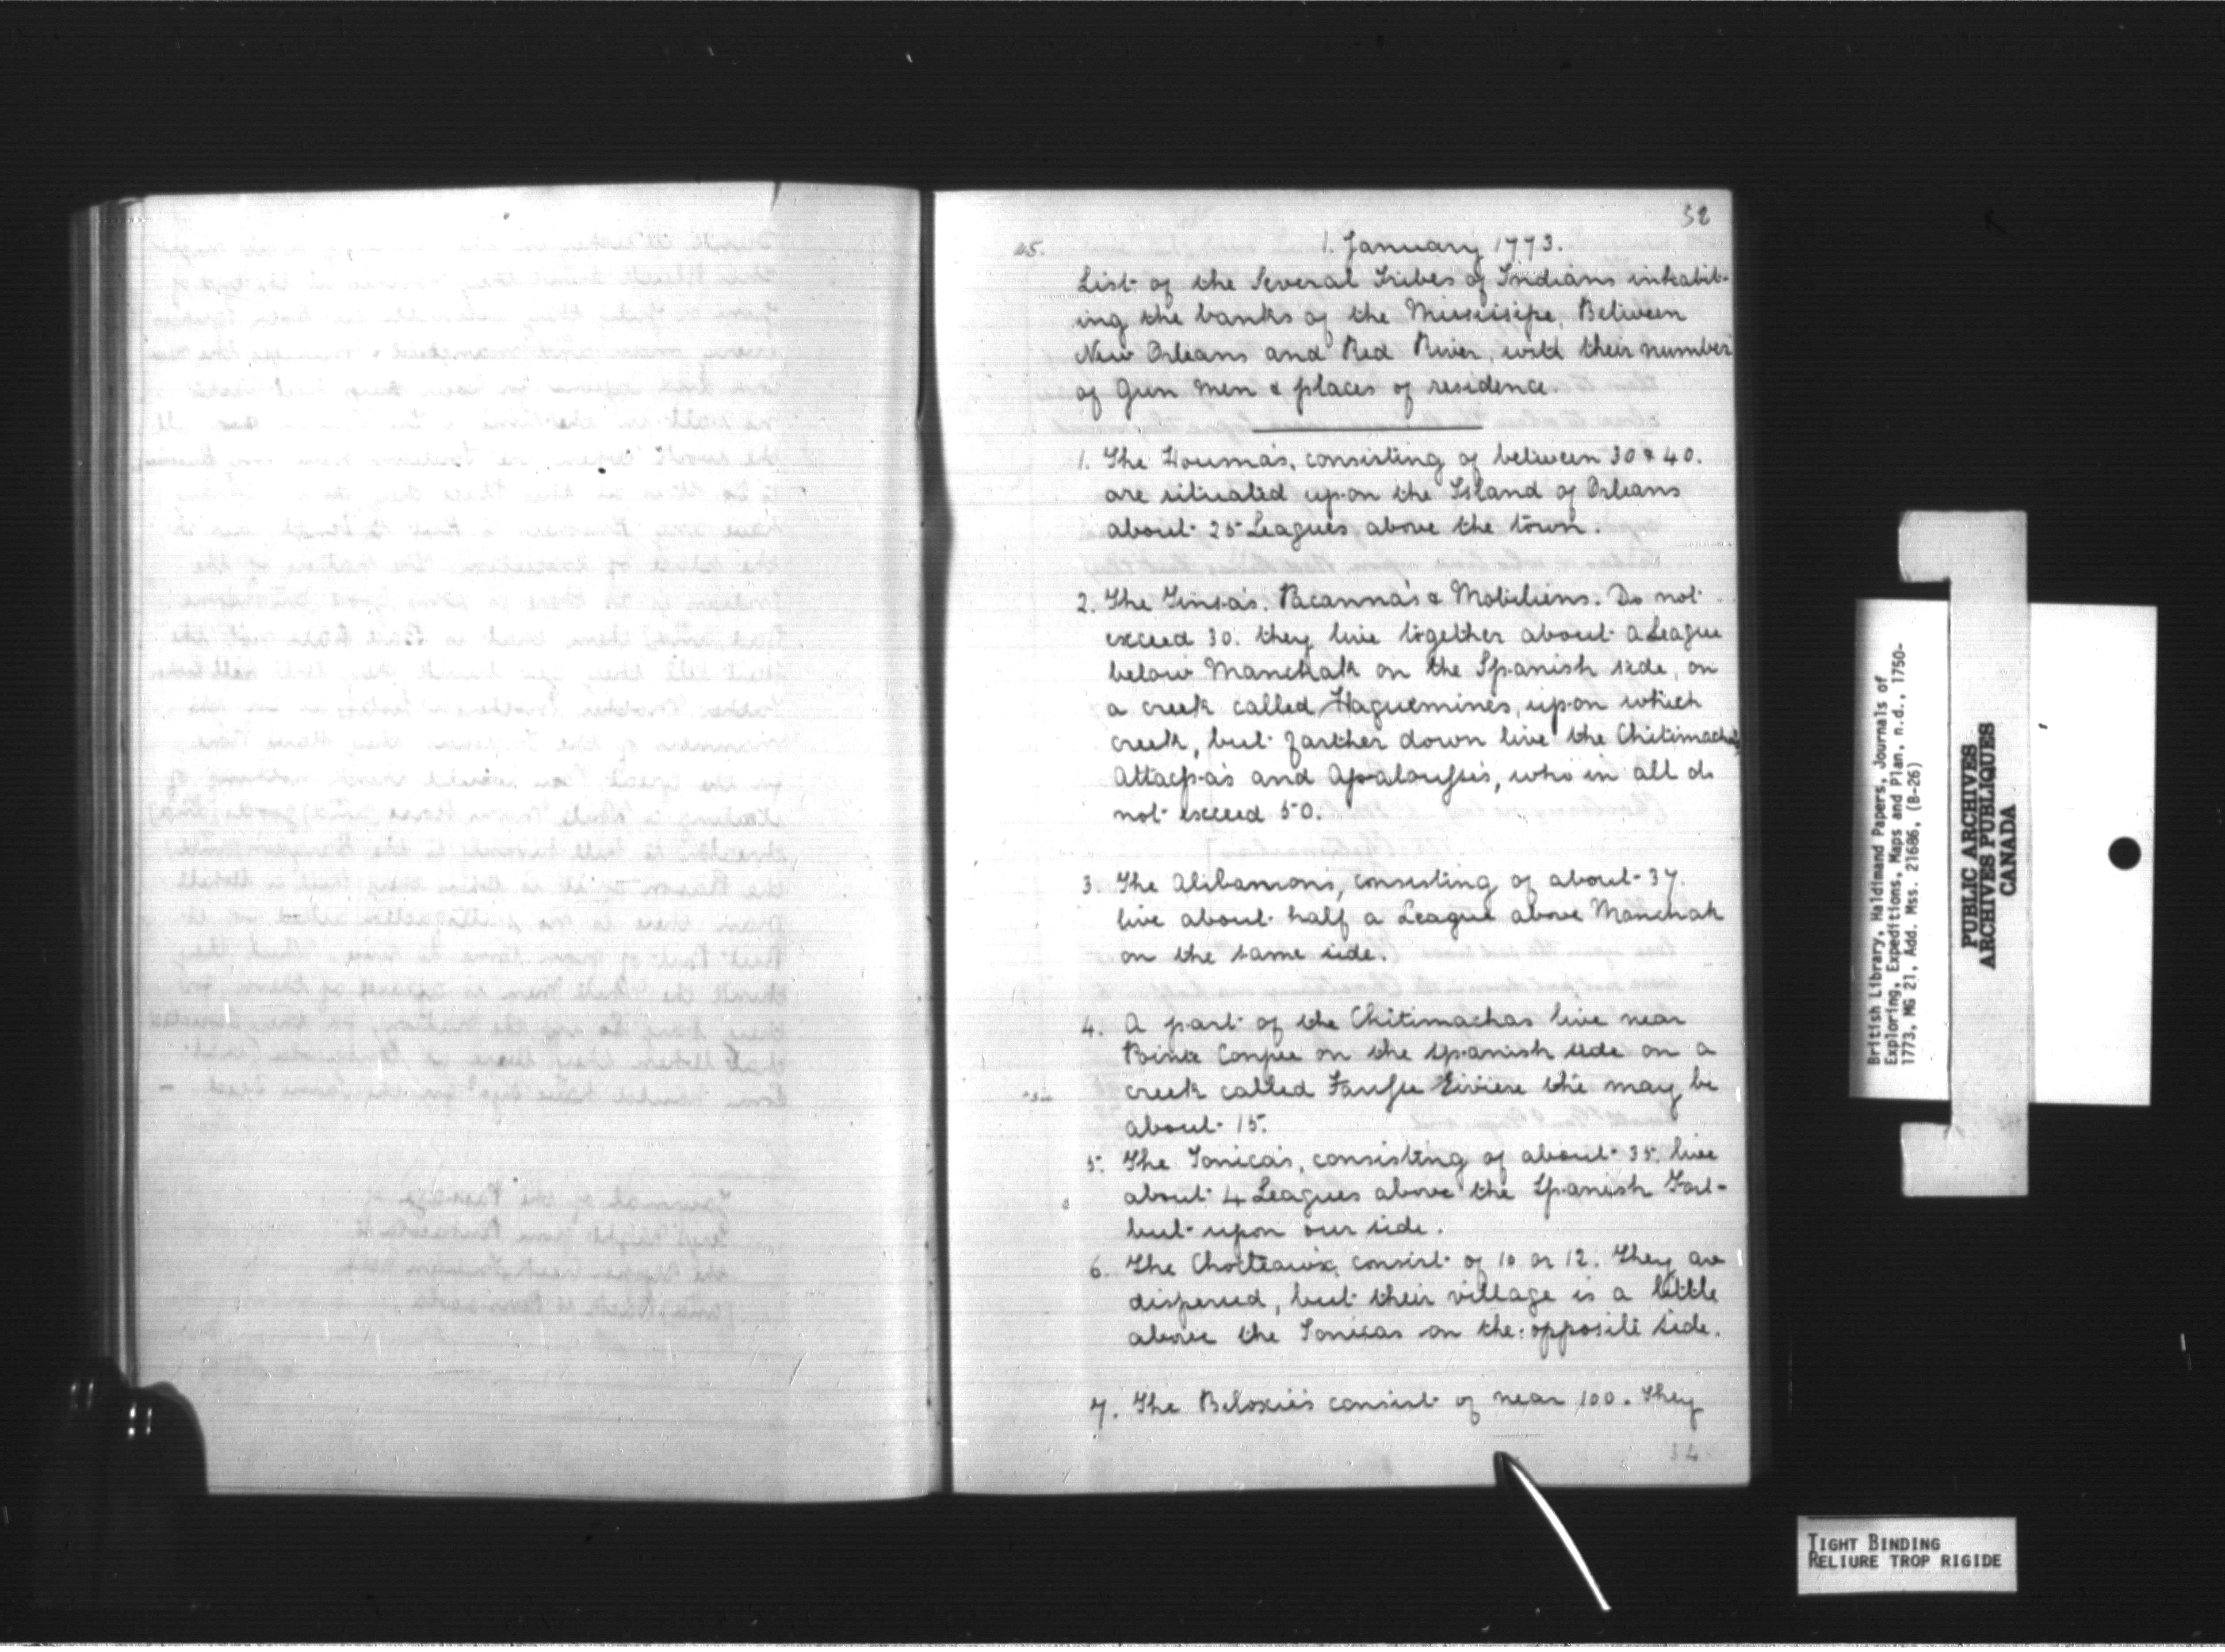 52
45.
1. January 1773.
List of the Several Tribes of Indians inhabit-
ing the banks of the Missisipe, Between
New Orleans and Red River, with their number
of Gun Men & places of residence.
1. The Houma's, consisting of between 30 & 40.
are situated upon the Island of Orleans
about 25 Leagues above the town.
2. The Tinsa's. Pacanna's & Mobiliens. Do not
exceed 30. they live together about a League
below Manchak on the Spanish side, on
a creek called Haguemines, upon which
creek, but farther down live the Chitimachas
Attacpa's and Apalousse's, who in all do
not exceed 50.
3. The Alibamons, consisting of about 37.
live about half a League above Manchak
on the same side.
4. A part of the Chitimachas live near
Pointe Coupee on the Spanish side on a
creek called Fausse Riviere the may be
about 15.
5. The Tonica's, consisting of about 35. live
about 4 Leagues above the Spanish Fort
but upon our side.
6. The Chocteaws, consist of 10 or 12. They are
dispersed, but their village is a little
above the Tonicas on the opposite side.
7. The Beloxie's consist of near 100. They
34
British Library, Haldimand Papers, Journals of
Exploring, Expeditions, Maps and Plan, n.d., 1750-
1773, MG 21, Add. Mss. 21686, (B-26)
PUBLIC ARCHIVES
ARCHIVES PUBLIQUES
CANADA
TIGHT BINDING
RELIURE TROP RIGIDE